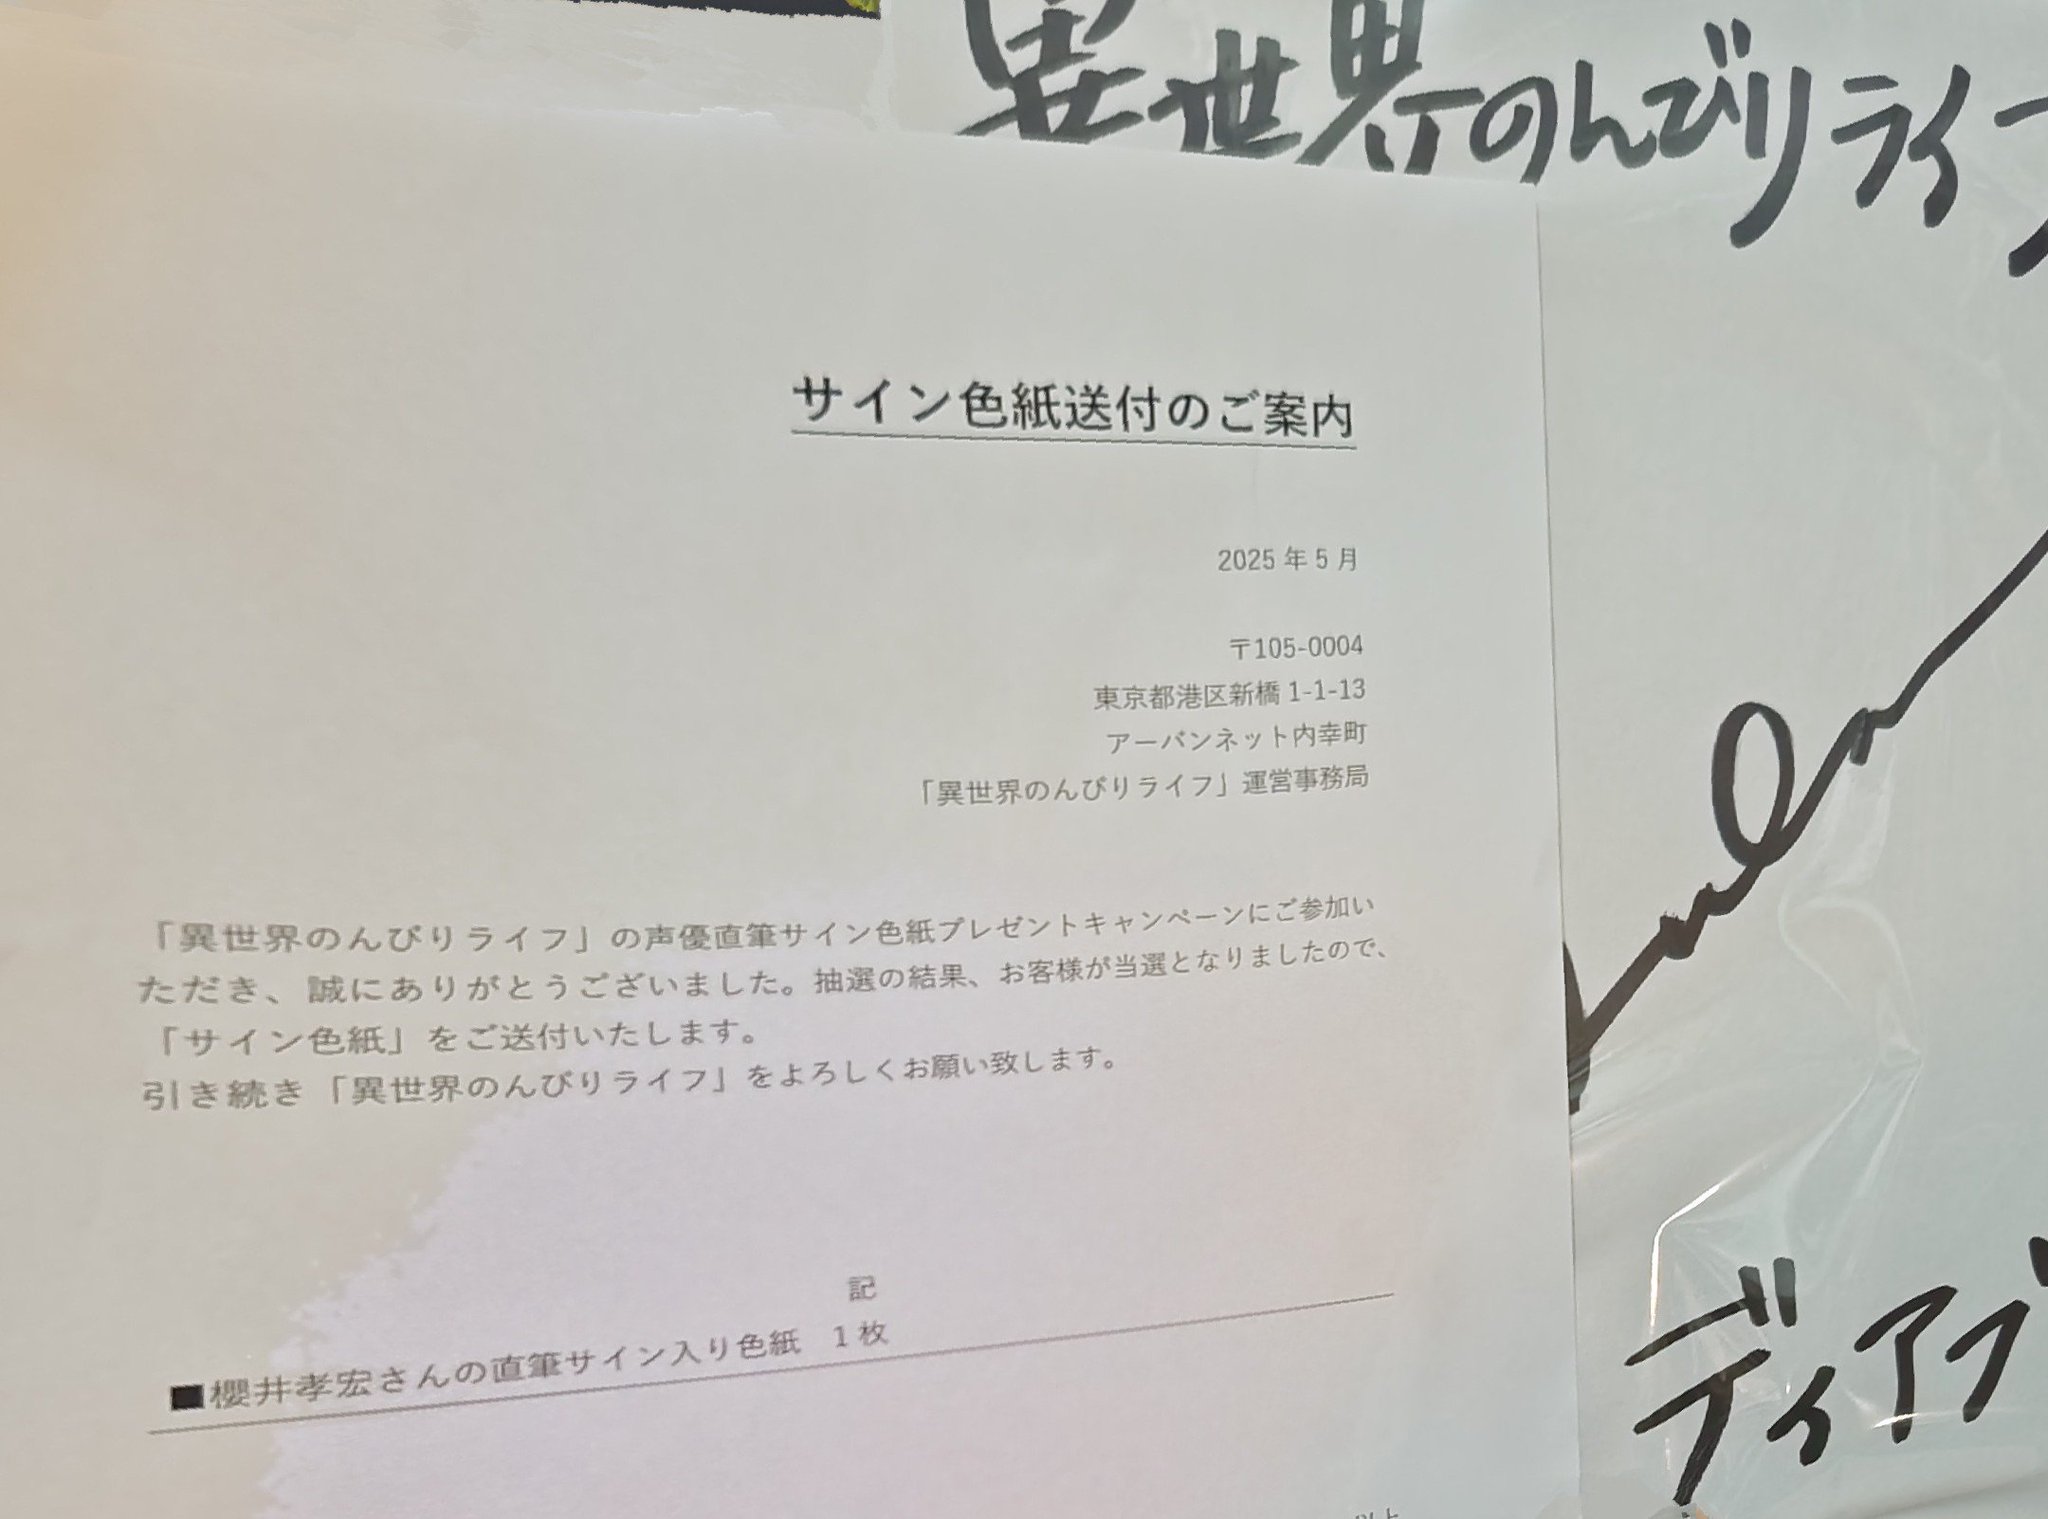 異世界のんびりライフ
サイン色紙送付のご案内
2025年5月
〒105-0004
東京都港区新橋1-1-13
アーバンネット内幸町
「異世界のんびりライフ」運営事務局
「異世界のんびりライフ」の声優直筆サイン色紙プレゼントキャンペーンにご参加い
ただき、誠にありがとうございました。抽選の結果、お客様が当選となりましたので、
「サイン色紙」をご送付いたします。
引き続き「異世界のんびりライフ」をよろしくお願い致します。
記
■櫻井孝宏さんの直筆サイン入り色紙　1枚
ディアブ